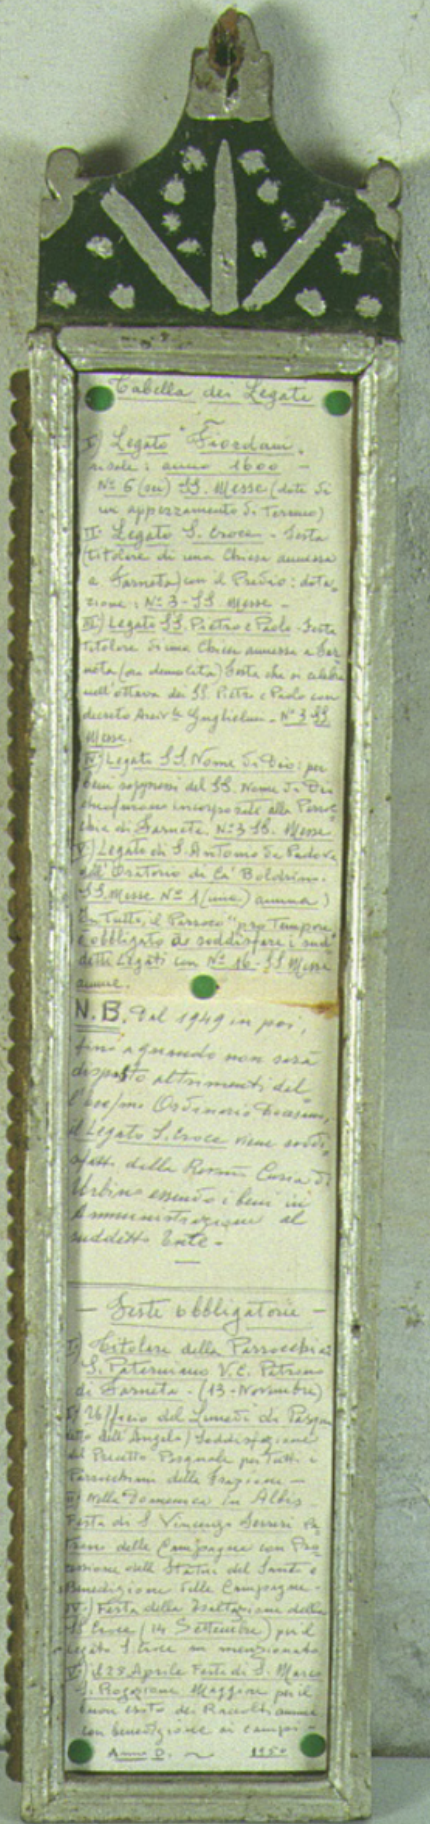 Tabella dei Legati
I) Legato "Fiordani"
risale: anno 1600 -
Nº 6 (sei) SS. Messe (dote di
un appezzamento di Terreno)
II- Legato S. Croce - Festa
(titolare di una Chiesa annessa
a Farneta) con il Predio: dota
zione: Nº 3 - SS. Messe -
III) Legato SS. Pietro e Paolo - Festa
titolare di una Chiesa annessa a Far
neta (ora demolita) Festa che si celebra
nell'ottava dei SS. Pietro e Paolo con
decreto Guglielmi - Nº 3 SS
Messe.
IV) Legato SS. Nome di Dio: per
beni soppressi del SS. Nome di Dio
che furono incorporate alla Parroc
chia di Farneta. Nº 3 SS. Messe
V) Legato di S. Antonio da Padova
all'Oratorio di Ca' Boldrino.
SS. Messe Nº 1 (una) annua)
In Tutto, il Parroco "pro Tempore"
è obbligato a soddisfare i sud
detti Legati con Nº 16 - SS Messe
annue.
N.B. Dal 1949 in poi,
fino a quando non sarà
disposto altrimenti dal
l'Ordinario
il Legato S. Croce viene soddi
sfatto dalla Curia di
Urbino essendo i beni in
Amministrazione al
suddetto Ente -
- Feste obbligatorie -
I) Titolare della Parrocchia
S. Paterniano V.C. Patrono
di Farneta - (13 - Novembre)
II) Ufficio del Lunedì di Pasqua
detto dell'Angelo) Soddisfazione
del Precetto Pasquale per Tutti i
Parrocchiani della Frazione -
III) Nella Domenica in Albis -
Festa di S. Vincenzo Ferreri Pa
trono delle Campagne con Pro
cessione della Statua del Santo e
Benedizione delle Campagne -
IV) Festa della Esaltazione della
S. Croce (14 Settembre) per il
Legato S. Croce su menzionato
V) il 25 Aprile Festa di S. Marco
S. Rogazione Maggiore per il
buon esito dei Raccolti annue
con benedizione ai campi -
Anno D. ~ 1950